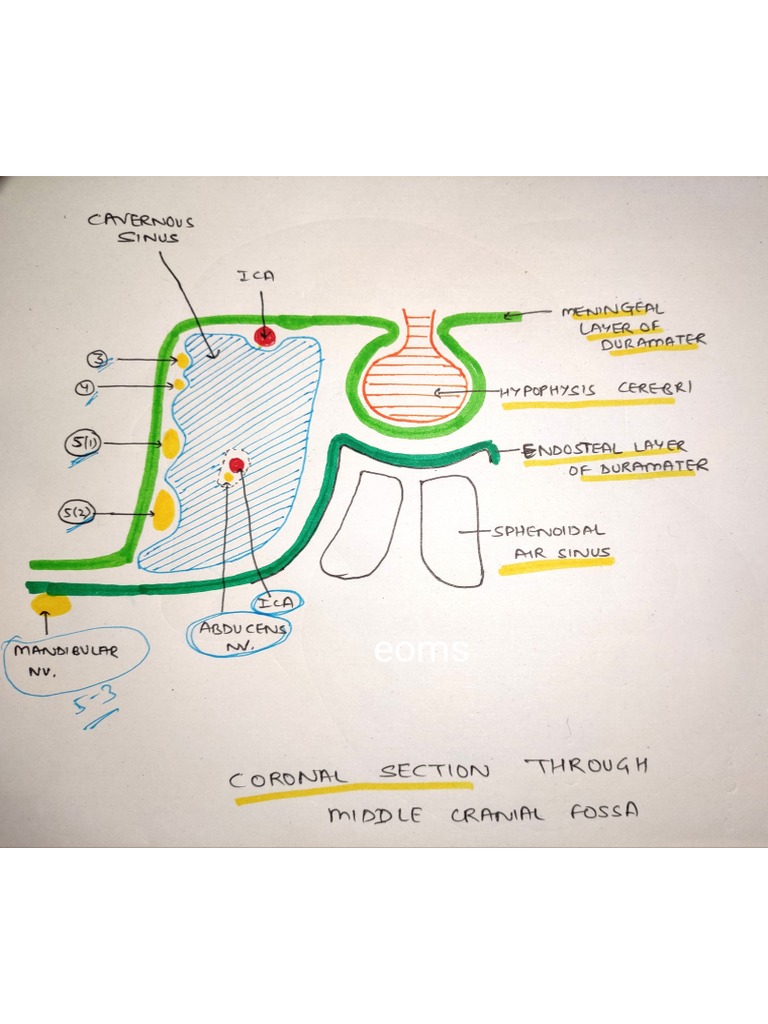 CAVERNOUS
SINUS
ICA
MENINGEAL
LAYER OF
DURAMATER
3
4
HYPOPHYSIS CEREBRI
5(1)
ENDOSTEAL LAYER
OF DURAMATER
5(2)
SPHENOIDAL
AIR SINUS
ICA
ABDUCENS
NV.
MANDIBULAR
NV.
5-3
eoms
CORONAL SECTION THROUGH
MIDDLE CRANIAL FOSSA